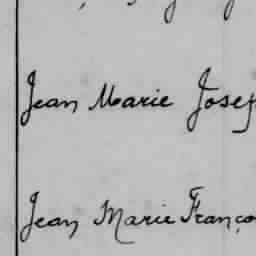 Jean Marie Josep
Jean Marie Franço